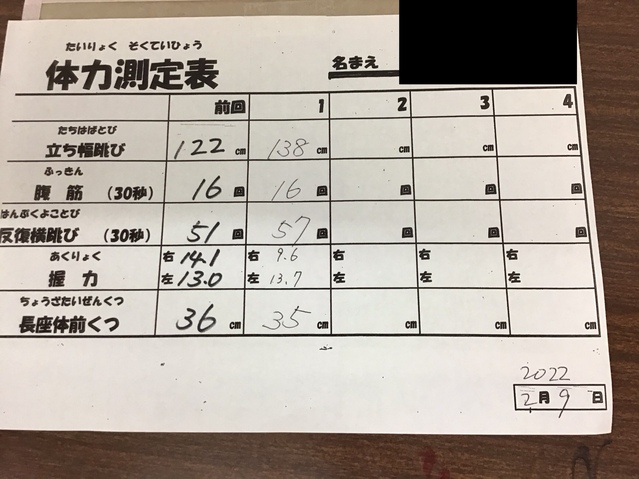 たいりょく そくていひょう
体力測定表 名まえ
前回 1 2 3 4
たちはばとび
立ち幅跳び 122cm 138cm cm cm cm
ふっきん
腹筋 (30秒) 16回 16回 回 回 回
はんぷくよことび
反復横跳び (30秒) 51回 57回 回 回 回
あくりょく 右14.1 右9.6 右 右 右
握力 左13.0 左13.7 左 左 左
ちょうざたいぜんくつ
長座体前くつ 36cm 35cm cm cm cm
2022
2月9日